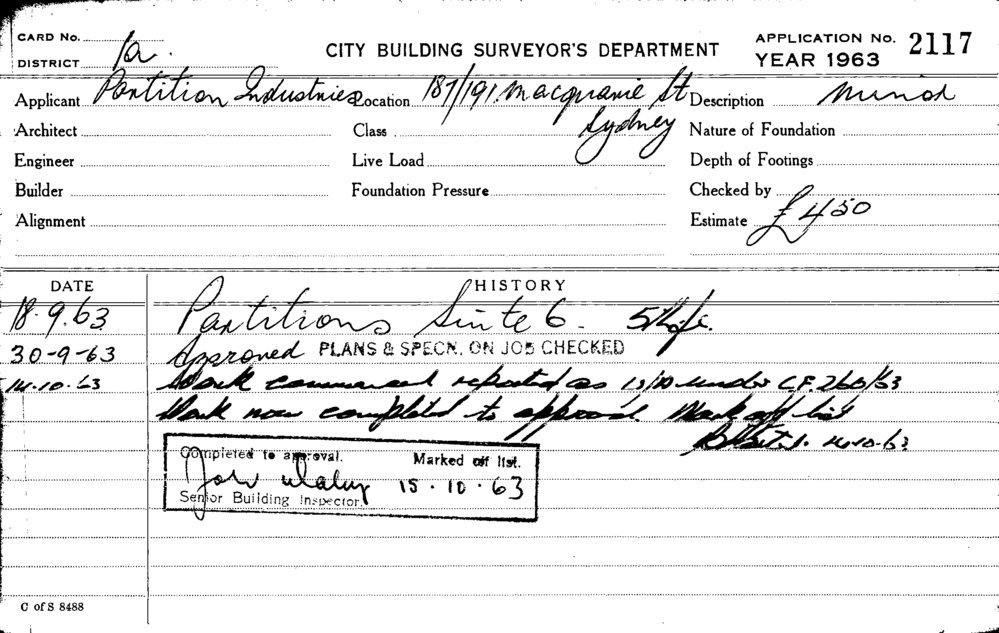 CARD No.
DISTRICT 1a.
CITY BUILDING SURVEYOR'S DEPARTMENT
APPLICATION No. 2117
YEAR 1963
Applicant Partition Industries Location 187/191 Macquarie St Description Minor
Sydney
Architect Class Nature of Foundation
Engineer Live Load Depth of Footings
Builder Foundation Pressure Checked by
Alignment Estimate £450
DATE HISTORY
18.9.63 Partitions Suite 6.
30-9-63 Approved PLANS & SPECN. ON JOB CHECKED
14.10.63 Work commenced reported as under C.F. 260/63
Work now completed to approval Mark off list
14-10-63
Completed to approval. Marked off list.
15.10.63
Senior Building Inspector.
C of S 8488